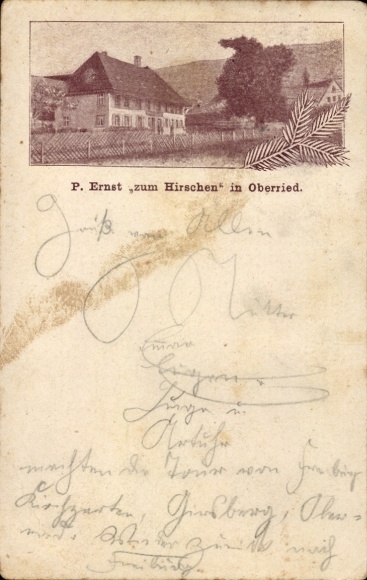 P. Ernst „zum Hirschen“ in Oberried.
Gruß von Allen
Mutter
Emma
Eugen
Luga u
Arthur
machten die Tour von Freiburg
Kirchzarten, Giersberg, Ober-
zurück nach
Freiburg.